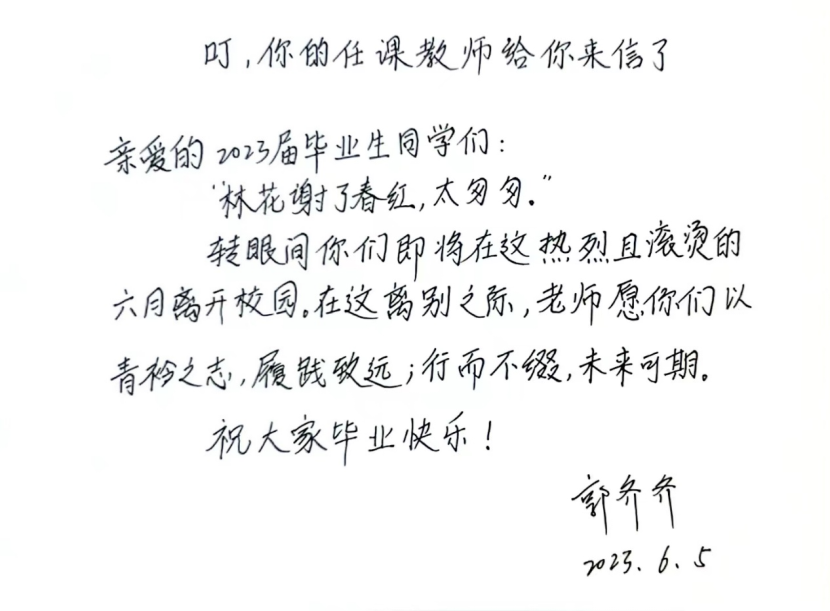 叮,你的任课教师给你来信了
亲爱的2023届毕业生同学们:
“林花谢了春红,太匆匆。”
转眼间你们即将在这热烈且滚烫的
六月离开校园。在这离别之际,老师愿你们以
青衿之志,履践致远;行而不缀,未来可期。
祝大家毕业快乐!
郭齐齐
2023.6.5